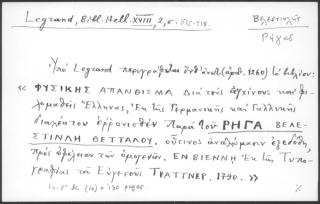 Legrand, Bibl. Hell. XVIII, 2, σ. 515-518.
Βελεστινλῆς
Ρήγας
Ὑπὸ Legrand περιγράφεται (ἀριθ. 1260) τὸ βιβλίον:
« ΦΥΣΙΚΗΣ ΑΠΑΝΘΙΣΜΑ Διὰ τοὺς ἀγχίνους καὶ φι-
λομαθεῖς Ἕλληνας, Ἐκ τῆς Γερμανικῆς καὶ Γαλλικῆς
διαλέκτου ἐρανισθὲν Παρὰ τοῦ ΡΗΓΑ ΒΕΛΕ-
ΣΤΙΝΛΗ ΘΕΤΤΑΛΟΥ. οὗτινος ἀναλώμασιν ἐξεδόθη,
πρὸς ὠφέλειαν τῶν ὁμογενῶν. ΕΝ ΒΙΕΝΝΗ Ἐκ τῆς Τυπο-
γραφίας τοῦ Εὐγενοῦς ΤΡΑΤΤΝΕΡ. 1790. »